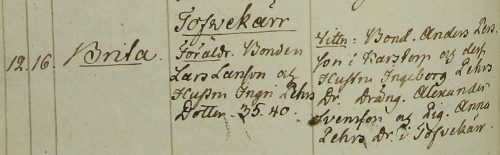 12. 16. Brita.
Tofvekärr
Föräldr. Bonden
Lars Larsson og
Hustru Ingri Pehrs
Dotter. 35.40.
Vittn: Bond. Anders Pers
son i Karstorp og des
Hustru Ingeborg Pehrs
Dr. Dräng. Alexander
Svensson og Pig. Anna
Pehrs Dr. i Tofvekärr.